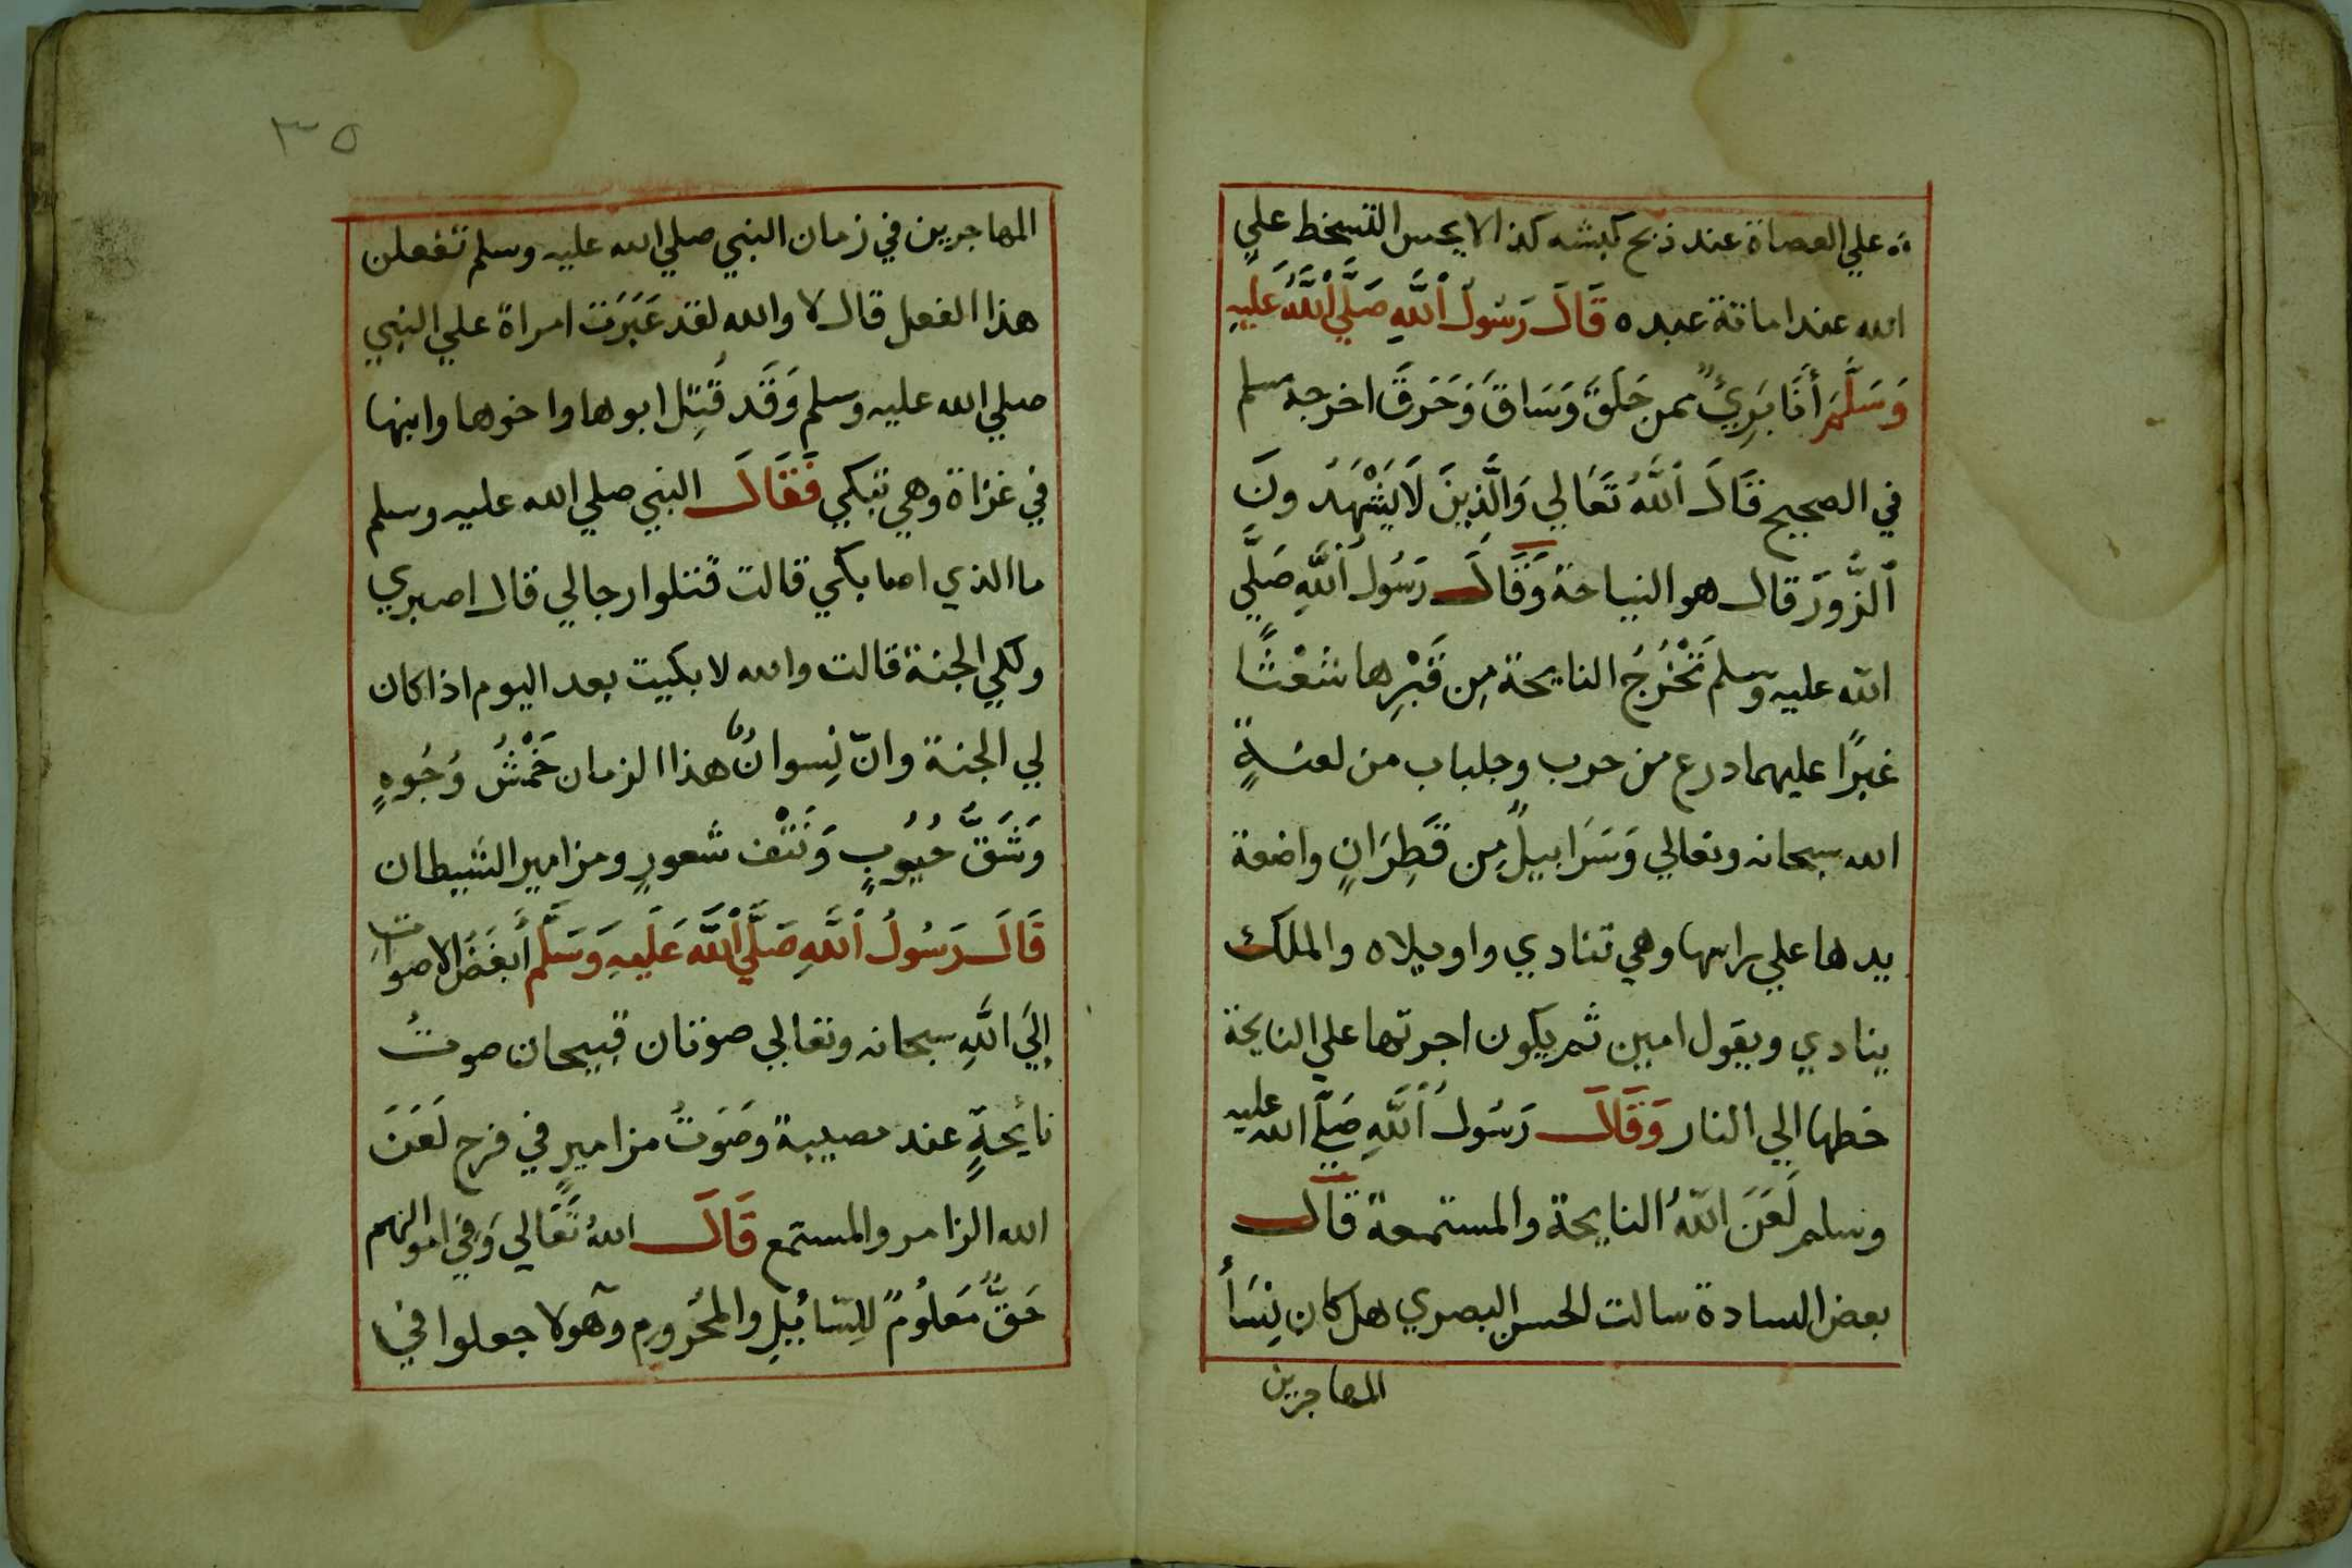 ة علي العصاة عند ذبح كبشه كذا لا يحسن التسخط علي
الله عند اماتة عبده قَالَ رَسُولُ اَللَّهِ صَلَّي اَللَّهُ عَلَيهِ
وَسَلَّمَ أَنَا بَرِيٌ ممن حَلَقَ وَسَاقَ وَخَرَقَ اخرجه مسلم
في الصحيح قَالَ اَللَّهُ تَعَالي وَالَّذِينَ لَا يَشْهَدُونَ
اَلزُّورَ قال هو النياحة وَقَالَ رَسُولُ اَللَّهِ صَلَّي
الله عليه وسلم تَخْرُجُ النايحة مِن قَبْرِها شَعْثًا
غبرًا عليهما درع من جرب وجلباب من لعنةٍ
الله سبحانه وتعالي وَسَرَابيلٌ مِن قَطِرَانٍ واضعة
يدها علي راسها وهي تنادي واويلاه والملك
ينادي ويقول امين ثم يكون اجرتها علي النايحة
خطها الي النار وَقَالَ رَسُولُ اَللَّهِ صَلَّي الله عليه
وسلم لَعَنَ اللهُ النايحة والمستمعة قال
بعض السادة سالت الحسن البصري هل كان نِسَأُ
المهاجرين
٣٥
المهاجرين في زمان النبي صلي الله عليه وسلم تفعلن
هذا الفعل قال لا والله لقد عَبَرَت امراة علي النبي
صلي الله عليه وسلم وَقَد قُتِل ابوها واخوها وابنها
في غزاة وهي تبكي فَقَالَ النبي صلي الله عليه وسلم
ما الذي اصابكي قالت قتلوا رجالي قال اصبري
ولكي الجنة قالت والله لا بكيت بعد اليوم اذا كان
لي الجنة وانّ نِسوانُ هذا الزمان خَمْشُ وُجُوهٍ
وَشَقُّ جُيُوبٍ وَنَتْف شعورٍ ومزامير الشيطان
قَالَ رَسُولُ اَللَّهِ صَلَّي اَللَّه عَلَيهِ وَسَلَّم أَبغَضُ الاصواتِ
الَي اللَّهِ سبحانه وتعالي صوتان قبيحان صوتُ
نائحةٍ عند مصيبة وصَوتُ مزاميرٍ في فرحٍ لَعَنَ
الله الزامر والمستمع قَالَ اللهُ تَعَالي وَفي اموالهم
حَقٌّ مَعلُومٌ لِلسَّائيلِ والمَحُرومِ وهولا جعلوا في